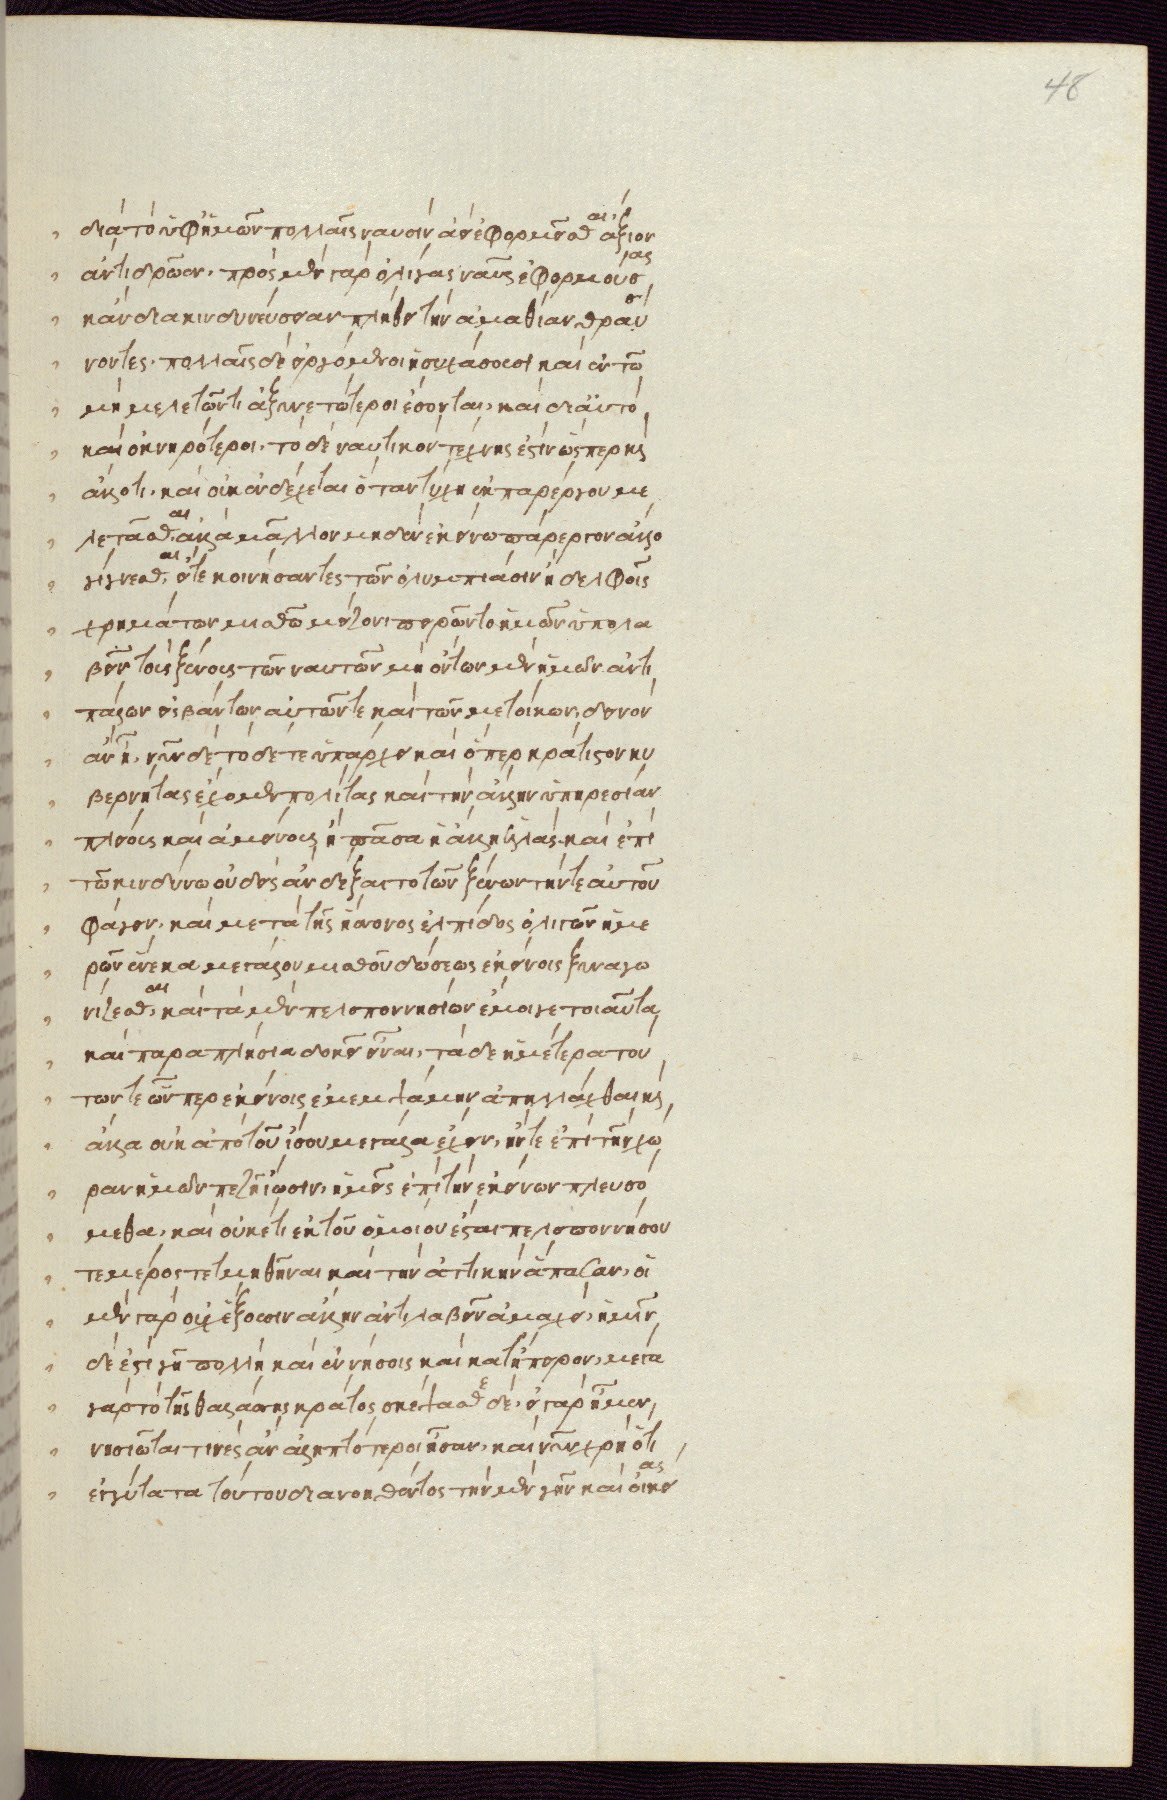 48
διὰ τὸ ὑφ' ἡμῶν πολλαῖς ναυσὶν ἀεὶ ἐφορμεῖσθαι, ἄξιον
ἄντι δρῶεν. πρὸς μὲν γὰρ ὀλίγας ναῦς ἐφορμούσας
κἂν διακινδυνεύσειαν πλήθει τὴν ἀμαθίαν θρασύ
νοντες. πολλαῖς δὲ εἰργόμενοι ἡσυχάσουσι καὶ ἐν τῶ
μὴ μελετῶντι ἀξυνετώτεροι ἔσονται, καὶ δι' αὐτὸ
καὶ ὀκνηρότεροι. τὸ δὲ ναυτικὸν τέχνης ἐστὶν ὥσπερ καὶ
ἄλλο τι. καὶ οὐκ ἐνδέχεται ὅταν τύχη ἐκ παρέργου με
λετᾶσθαι, ἀλλὰ μᾶλλον μηδὲν ἐκείνω πάρεργον ἄλλο
γίγνεσθαι, εἴτε κινήσαντες τῶν ὀλυμπιάσιν ἢ δελφοῖς
χρημάτων μισθῶ μείζονι πειρῶντο ἡμῶν ὑπολα
βεῖν τοὺς ξένους τῶν ναυτῶν μὴ ὄντων μὲν ἡμῶν ἀντι
πάλων ἐσβάντων αὐτῶν τε καὶ τῶν μετοίκων, δεινὸν
ἂν ἦν. νῦν δὲ τόδε τε ὑπάρχει καὶ ὅπερ κράτιστον κυ
βερνήτας ἔχομεν πολίτας καὶ τὴν ἄλλην ὑπηρεσίαν
πλείους καὶ ἀμείνους ἢ πᾶσα ἡ ἄλλη ἑλλάς. καὶ ἐπὶ
τῶ κινδύνω οὐδεὶς ἂν δέξαιτο τῶν ξένων τήν τε αὐτοῦ
φεύγειν, καὶ μετὰ τῆς ἥσσονος ἐλπίδος ὀλίγων ἡμε
ρῶν ἕνεκα μεγάλου μισθοῦ δόσεως ἐκείνοις ξυναγω
νίζεσθαι, καὶ τὰ μὲν πελοποννησίων ἔμοιγε τοιαῦτα
καὶ παραπλήσια δοκεῖ εἶναι, τὰ δὲ ἡμέτερα τού
των τε ὧν περ ἐκείνοις ἐμεμψάμην ἀπηλλάχθαι καὶ
ἄλλα οὐκ ἀπὸ τοῦ ἴσου μεγάλα ἔχειν, ἤν τε ἐπὶ τὴν χώ
ραν ἡμῶν πεζῆ ἴωσιν, ἡμεῖς ἐπὶ τὴν ἐκείνων πλευσό
μεθα, καὶ οὐκέτι ἐκ τοῦ ὁμοίου ἔσται πελοποννήσου
τε μέρος τι τμηθῆναι καὶ τὴν ἀττικὴν ἅπασαν, οἱ
μὲν γὰρ οὐχ ἕξουσιν ἄλλην ἀντιλαβεῖν ἀμαχεί, ἡμῖν
δέ ἐστι γῆ πολλὴ καὶ ἐν νήσοις καὶ κατ' ἤπειρον, μέγα
γὰρ τὸ τῆς θαλάσσης κράτος σκέψασθε δέ, εἰ γὰρ ἦμεν
νησιῶται τίνες ἂν ἀληπτότεροι ἦσαν, καὶ νῦν χρὴ ὅτι
ἐγγύτατα τούτου διανοηθέντας τὴν μὲν γῆν καὶ οἰκίας